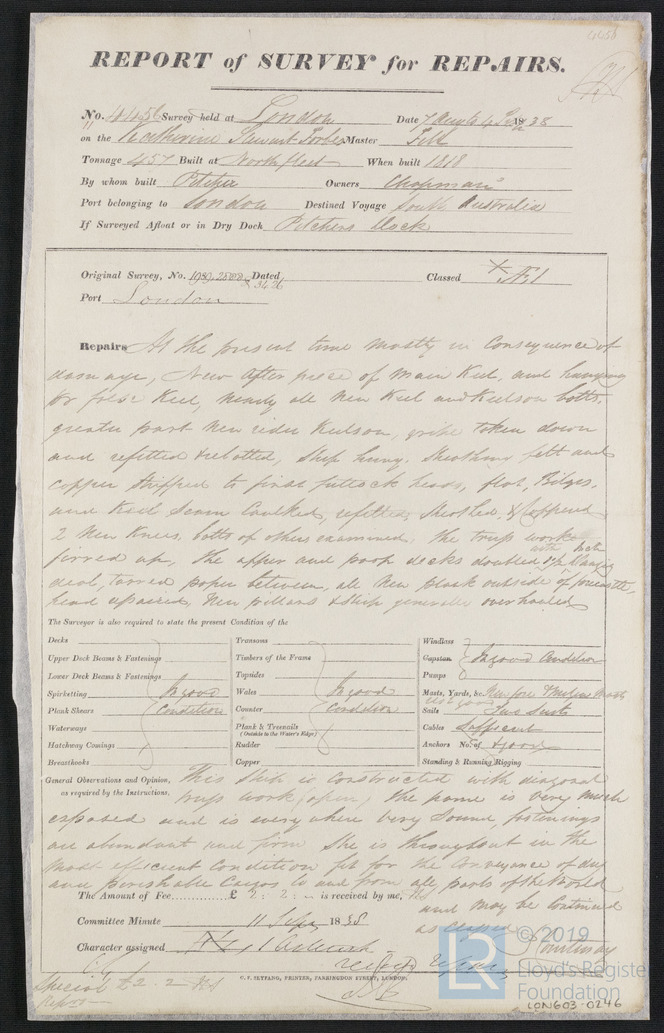 REPORT of SURVEY for REPAIRS.
No. 44456 Survey held at London Date 7 Augt & 4 Sep 1838
on the Katherine Stewart Forbes Master Fell
Tonnage 457 Built at Northfleet When built 1818
By whom built Pitcher Owners Chapman
Port belonging to London Destined Voyage South Australia
If Surveyed Afloat or in Dry Dock Pitchers Dock
Original Survey, No. Dated Classed Æ1
Port London
Repairs At the present time mostly in consequence of
damage, New after piece of Main Keel, and
for false Keel, nearly all New Keel and Keelson bolts,
greater part New rider Keelson, gripe taken down
and refitted & rebolted, Ship hung, Sheathing felt and
copper stripped to first futtock heads, flat, Bilges,
and Keel Seam Caulked, refelted, Sheathed, & Coppered
2 New Knees, bolts of others examined, the truss work
firred up, the upper and poop decks doubled with Inch
deal, tarred paper between, all New plank outside of forecastle,
head repaired, New pillars & Ship generally overhauled
The Surveyor is also required to state the present Condition of the
Decks
Upper Deck Beams & Fastenings
Lower Deck Beams & Fastenings
Spirketting In good
Plank Shears Condition
Waterways
Hatchway Comings
Breasthooks
Transoms
Timbers of the Frame
Topsides
Wales In good
Counter Condition
Plank & Treenails
(Outside to the Water's Edge)
Rudder
Copper
Windlass
Capstan In good Condition
Pumps
Masts, Yards, &c. New fore & Mizen Masts
Sails Two Suits
Cables Sufficient
Anchors No. of & good
Standing & Running Rigging
General Observations and Opinion, This Ship is Constructed with diagonal
as required by the Instructions. truss work (open) the frame is very much
exposed and is everywhere very Sound, fastenings
are abundant and firm She is throughout in the
most efficient Condition fit for the Conveyance of dry
and perishable Cargo to and from all parts of the World
The Amount of Fee £ 2: 2: - is received by me,
and may be Continued
as classed
Committee Minute 11 Sepr 1838
Courtenay
Character assigned
C. F. SEYFANG, PRINTER, FARRINGDON STREET, LONDON.
Special £2. 2
© 2019
LR
Lloyd's Register
Foundation
LON603-0246